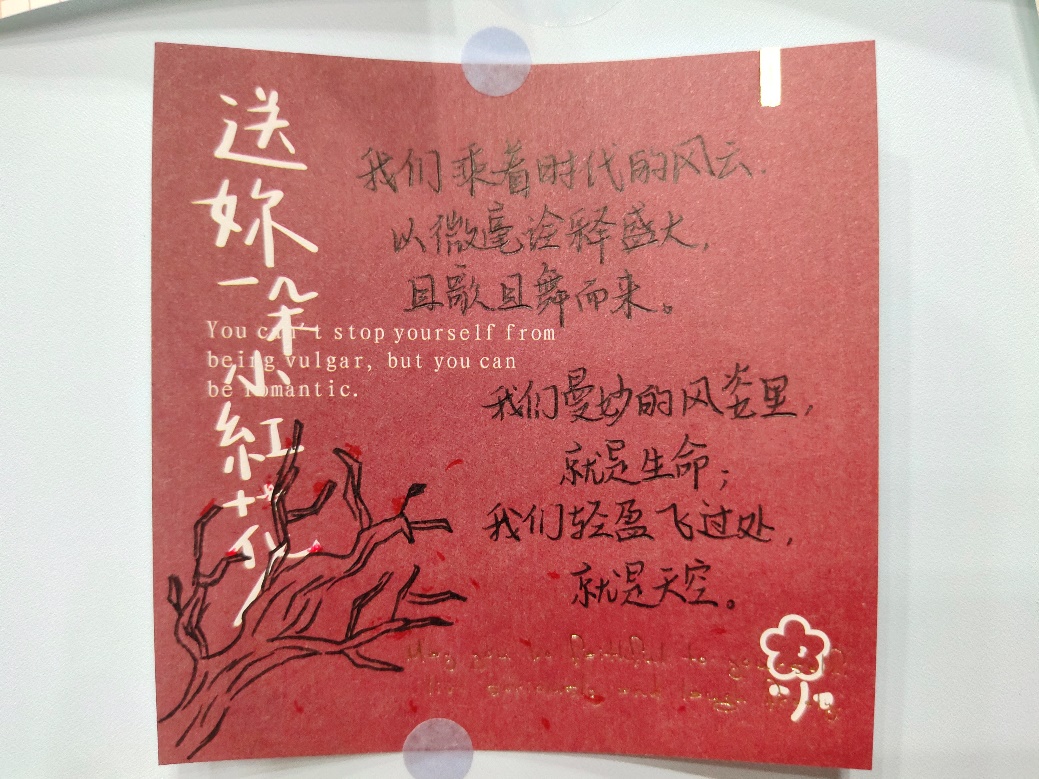 送妳一朵小紅花
我们乘着时代的风云.
以微毫诠释盛大,
且歌且舞而来。
You can't stop yourself from
being vulgar, but you can
be romantic.
我们曼妙的风姿里,
就是生命;
我们轻盈飞过处,
就是天空。
May you be faithful to yourself
live and laugh